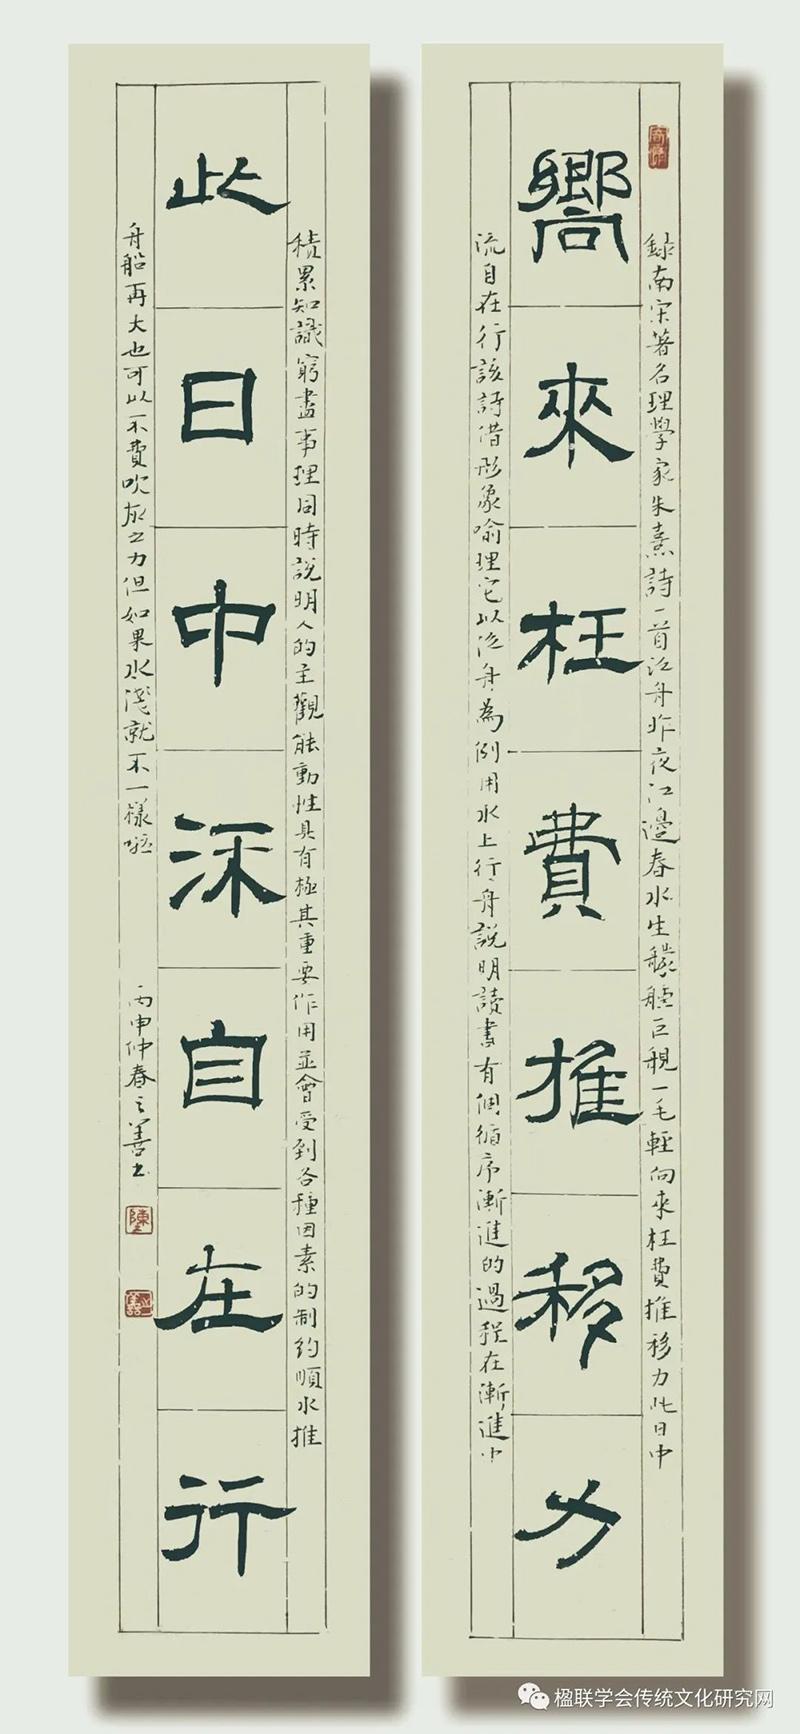 嚮來枉費推移力
錄南宋著名理學家朱熹詩一首江舟昨夜江邊春水生艨艟巨艦一毛輕向來枉費推移力此日中
流自在行該詩借形象喻理它以泛舟為例用水上行舟說明讀書有個循序漸進的過程在漸進中
此日中流自在行
積累知識窮盡事理同時說明人的主觀能動性具有極其重要作用並會受到各種因素的制約順水推
舟船再大也可以不費吹灰之力但如果水淺就不一樣啦
丙申仲春之善書
陳
楹联学会传统文化研究网